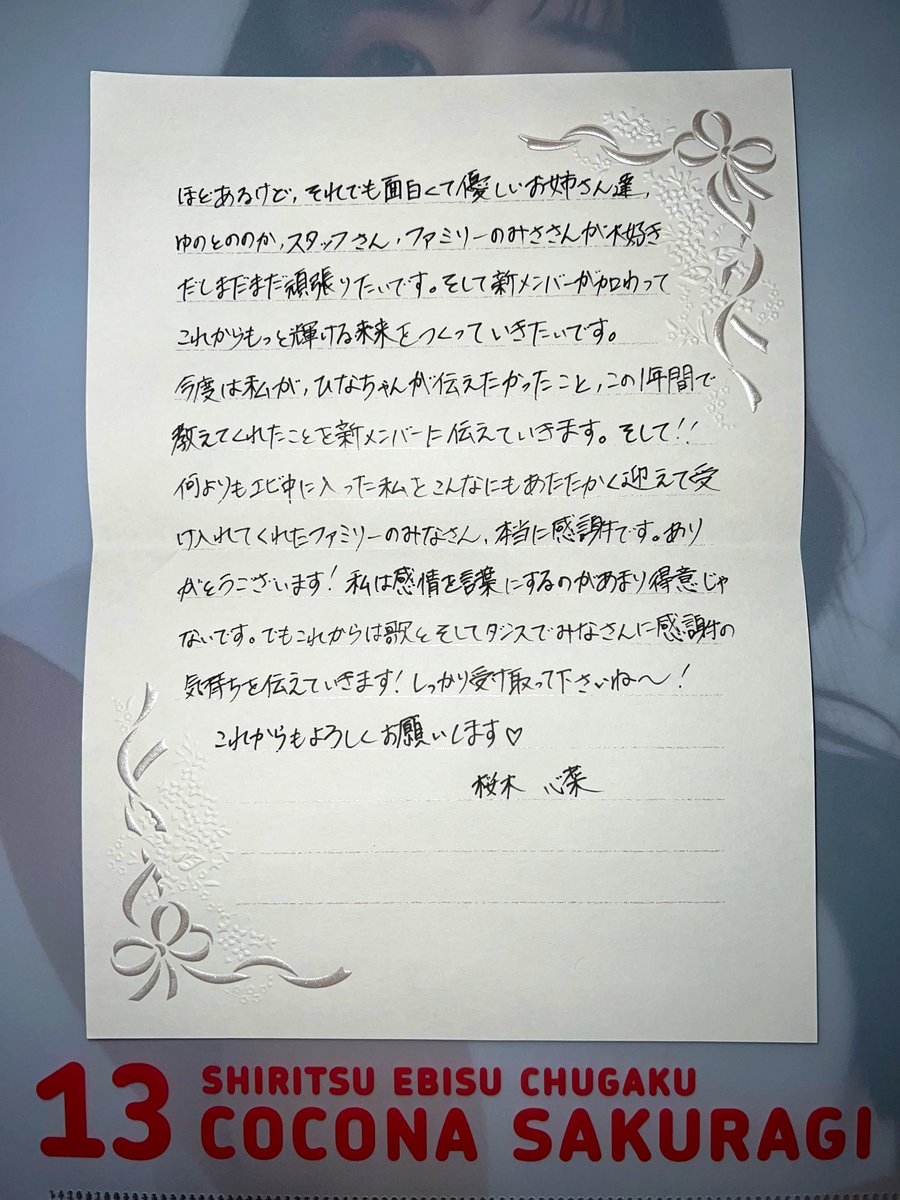 ほどあるけど、それでも面白くて優しいお姉さん達、
ゆのとののか、スタッフさん、ファミリーのみささんが大好き
だしまだまだ頑張りたいです。そして新メンバーが加わって
これからもっと輝ける未来をつくっていきたいです。
今度は私が、ひなちゃんが伝えたかったこと、この1年間で
教えてくれたことを新メンバーに伝えていきます。そして!!
何よりもエビ中に入った私をこんなにもあたたかく迎えて受
け入れてくれたファミリーのみなさん、本当に感謝です。あり
がとうございます!私は感情を言葉にするのがあまり得意じゃ
ないです。でもこれからは歌とそしてダンスでみなさんに感謝の
気持ちを伝えていきます!しっかり受け取って下さいね〜!
これからもよろしくお願いします♡
桜木 心菜
13 SHIRITSU EBISU CHUGAKU
COCONA SAKURAGI